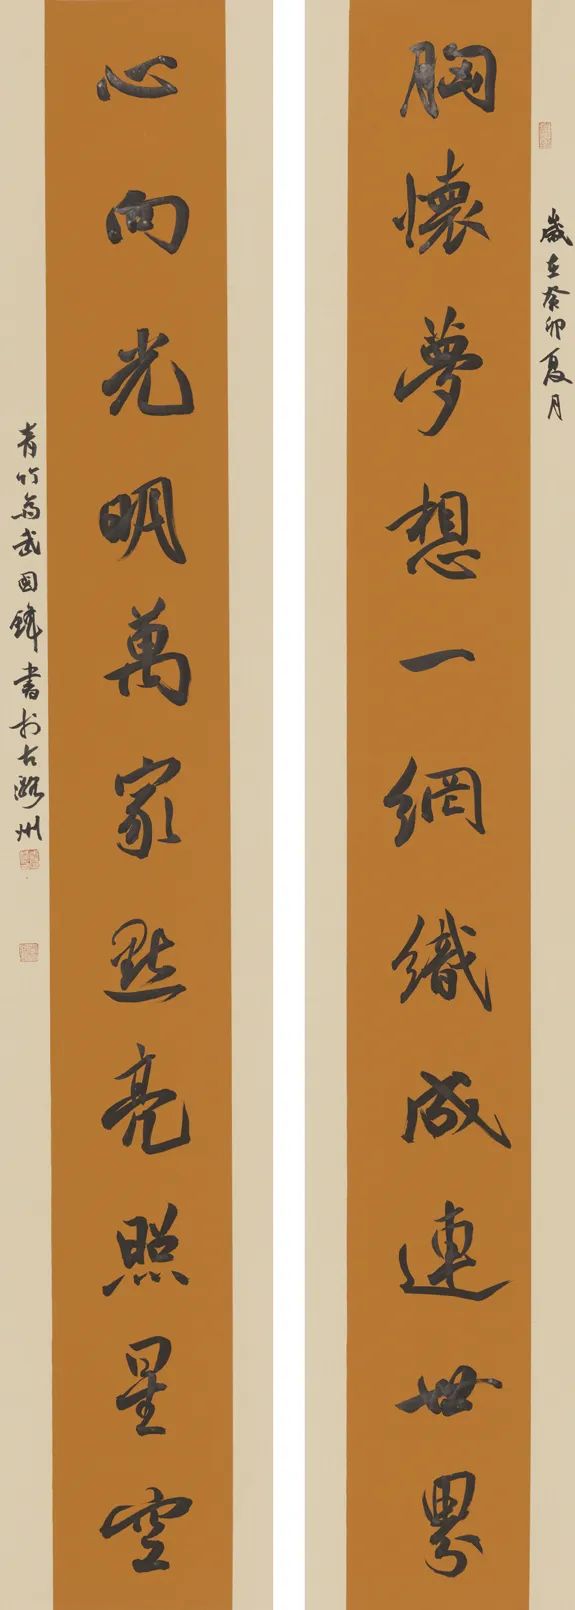 歲在癸卯夏月
胸懷夢想一網織成連世界
心向光明萬家點亮照星空
青竹斋武國鋒書於古潞州